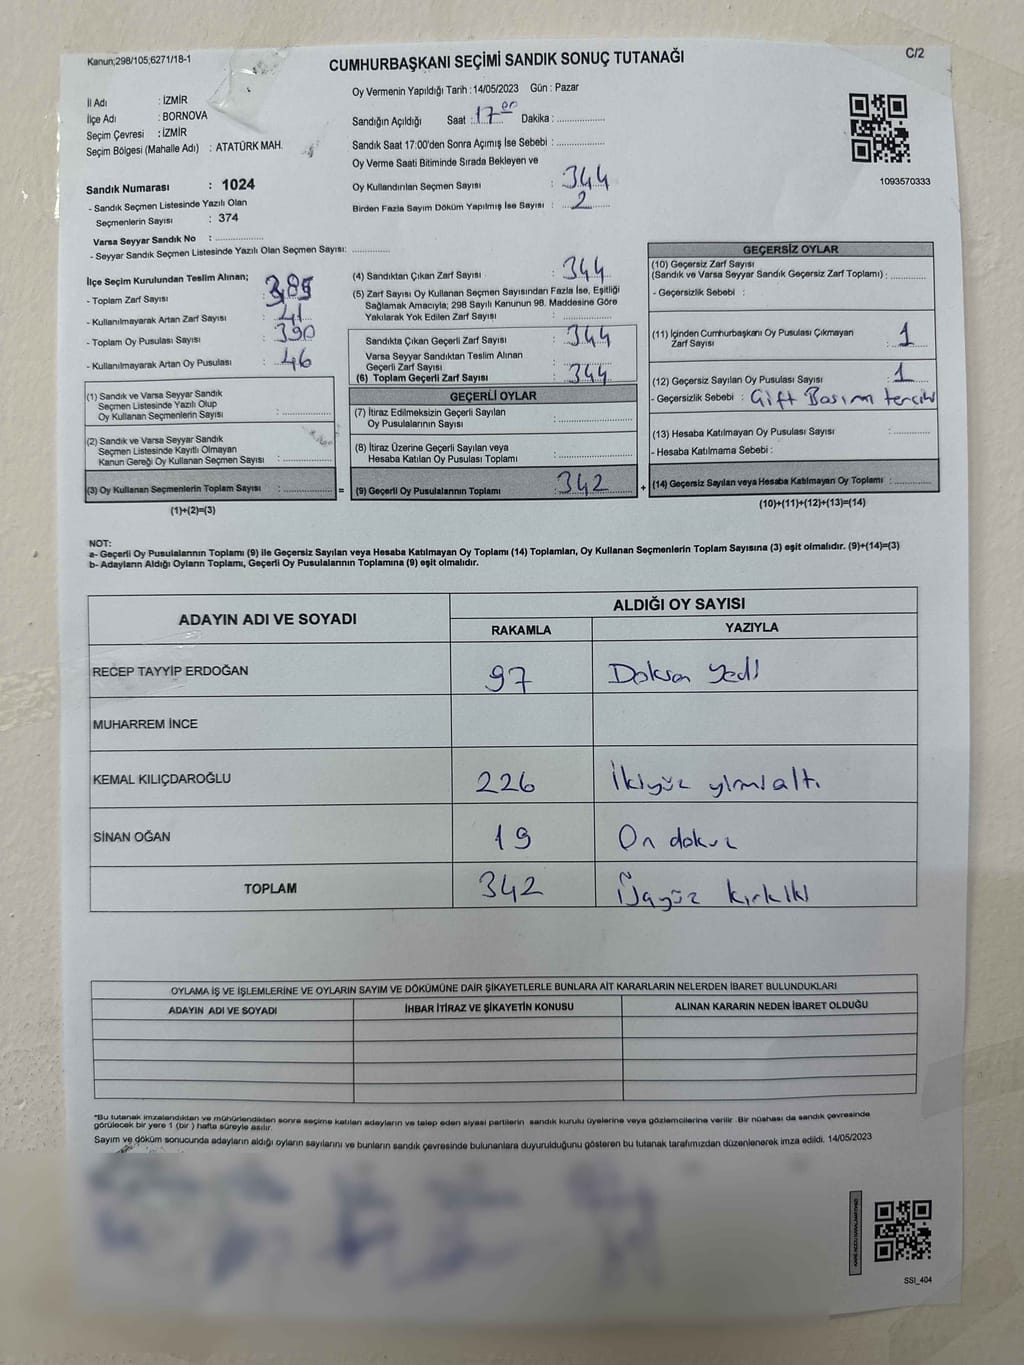 Kanun;298/105,6271/18-1
CUMHURBAŞKANI SEÇİMİ SANDIK SONUÇ TUTANAĞI
C/2
İl Adı : İZMİR
İlçe Adı : BORNOVA
Seçim Çevresi : İZMİR
Seçim Bölgesi (Mahalle Adı) : ATATÜRK MAH.
Sandık Numarası : 1024
- Sandık Seçmen Listesinde Yazılı Olan
Seçmenlerin Sayısı : 374
Varsa Seyyar Sandık No : ...............
- Seyyar Sandık Seçmen Listesinde Yazılı Olan Seçmen Sayısı: ............
Oy Vermenin Yapıldığı Tarih : 14/05/2023 Gün : Pazar
Sandığın Açıldığı Saat : 17 00 Dakika : ...............
Sandık Saat 17:00'den Sonra Açımış İse Sebebi : ...............
Oy Verme Saati Bitiminde Sırada Bekleyen ve
Oy Kullandırılan Seçmen Sayısı : 344
Birden Fazla Sayım Döküm Yapılmış İse Sayısı : 2
1093570333
İlçe Seçim Kurulundan Teslim Alınan;
- Toplam Zarf Sayısı : 385
- Kullanılmayarak Artan Zarf Sayısı : 41
- Toplam Oy Pusulası Sayısı : 390
- Kullanılmayarak Artan Oy Pusulası : 46
(1) Sandık ve Varsa Seyyar Sandık
Seçmen Listesinde Yazılı Olup
Oy Kullanan Seçmenlerin Sayısı : ............
(2) Sandık ve Varsa Seyyar Sandık
Seçmen Listesinde Kayıtlı Olmayan
Kanun Gereği Oy Kullanan Seçmen Sayısı : ............
(3) Oy Kullanan Seçmenlerin Toplam Sayısı : ............ =
(1)+(2)=(3)
(4) Sandıktan Çıkan Zarf Sayısı : 344
(5) Zarf Sayısı Oy Kullanan Seçmen Sayısından Fazla İse, Eşitliği
Sağlamak Amacıyla; 298 Sayılı Kanunun 98. Maddesine Göre
Yakılarak Yok Edilen Zarf Sayısı : ............
Sandıkta Çıkan Geçerli Zarf Sayısı : 344
Varsa Seyyar Sandıktan Teslim Alınan
Geçerli Zarf Sayısı : ............
(6) Toplam Geçerli Zarf Sayısı : 344
GEÇERLİ OYLAR
(7) İtiraz Edilmeksizin Geçerli Sayılan
Oy Pusulalarının Sayısı : ............
(8) İtiraz Üzerine Geçerli Sayılan veya
Hesaba Katılan Oy Pusulası Toplamı : ............
(9) Geçerli Oy Pusulalarının Toplamı : 342 +
GEÇERSİZ OYLAR
(10) Geçersiz Zarf Sayısı
(Sandık ve Varsa Seyyar Sandık Geçersiz Zarf Toplamı) : ............
- Geçersizlik Sebebi :
(11) İçinden Cumhurbaşkanı Oy Pusulası Çıkmayan
Zarf Sayısı : 1
(12) Geçersiz Sayılan Oy Pusulası Sayısı : 1
- Geçersizlik Sebebi : Çift Basım tercihi
(13) Hesaba Katılmayan Oy Pusulası Sayısı : ............
- Hesaba Katılmama Sebebi :
(14) Geçersiz Sayılan veya Hesaba Katılmayan Oy Toplamı : ............
(10)+(11)+(12)+(13)=(14)
NOT:
a- Geçerli Oy Pusulalarının Toplamı (9) ile Geçersiz Sayılan veya Hesaba Katılmayan Oy Toplamı (14) Toplamları, Oy Kullanan Seçmenlerin Toplam Sayısına (3) eşit olmalıdır. (9)+(14)=(3)
b- Adayların Aldığı Oyların Toplamı, Geçerli Oy Pusulalarının Toplamına (9) eşit olmalıdır.
ADAYIN ADI VE SOYADI
ALDIĞI OY SAYISI
RAKAMLA YAZIYLA
RECEP TAYYİP ERDOĞAN 97 Doksan Yedi
MUHARREM İNCE
KEMAL KILIÇDAROĞLU 226 İkiyüz yirmialtı
SİNAN OĞAN 19 On dokuz
TOPLAM 342 Üçyüz kırkiki
OYLAMA İŞ VE İŞLEMLERİNE VE OYLARIN SAYIM VE DÖKÜMÜNE DAİR ŞİKAYETLERLE BUNLARA AİT KARARLARIN NELERDEN İBARET BULUNDUKLARI
ADAYIN ADI VE SOYADI İHBAR İTİRAZ VE ŞİKAYETİN KONUSU ALINAN KARARIN NEDEN İBARET OLDUĞU
"Bu tutanak imzalandıktan ve mühürlendikten sonra seçime katılan adayların ve talep eden siyasi partilerin sandık kurulu üyelerine veya gözlemcilerine verilir. Bir nüshası da sandık çevresinde
görülecek bir yere 1 (bir ) hafta süreyle asılır.
Sayım ve döküm sonucunda adayların aldığı oyların sayılarını ve bunların sandık çevresinde bulunanlara duyurulduğunu gösteren bu tutanak tarafımızdan düzenlenerek imza edildi. 14/05/2023
SSI_404